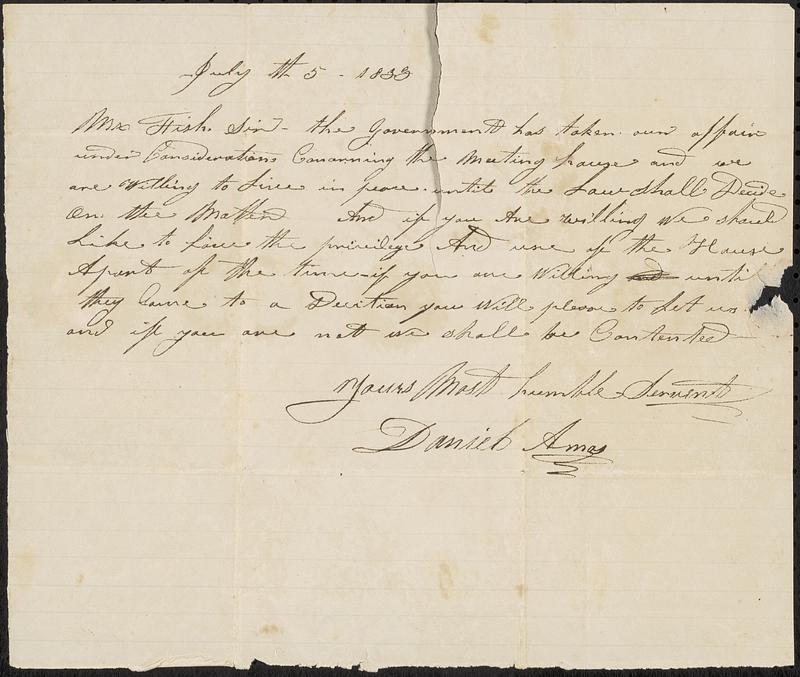 July th 5 - 1833
Mr Fish Sir - the Government has taken our affair
under Consideration Concerning the Meeting house and we
are Willing to Live in peace until the Law Shall Decide
On the Matter And if you Are willing we should
Like to have the privilige And use of the House
Apart of the time if you are Willing until
they Came to a Decition you Will please to Let us
and if you are not we shall be Contented
Yours Most humble Servent
Daniel Amos